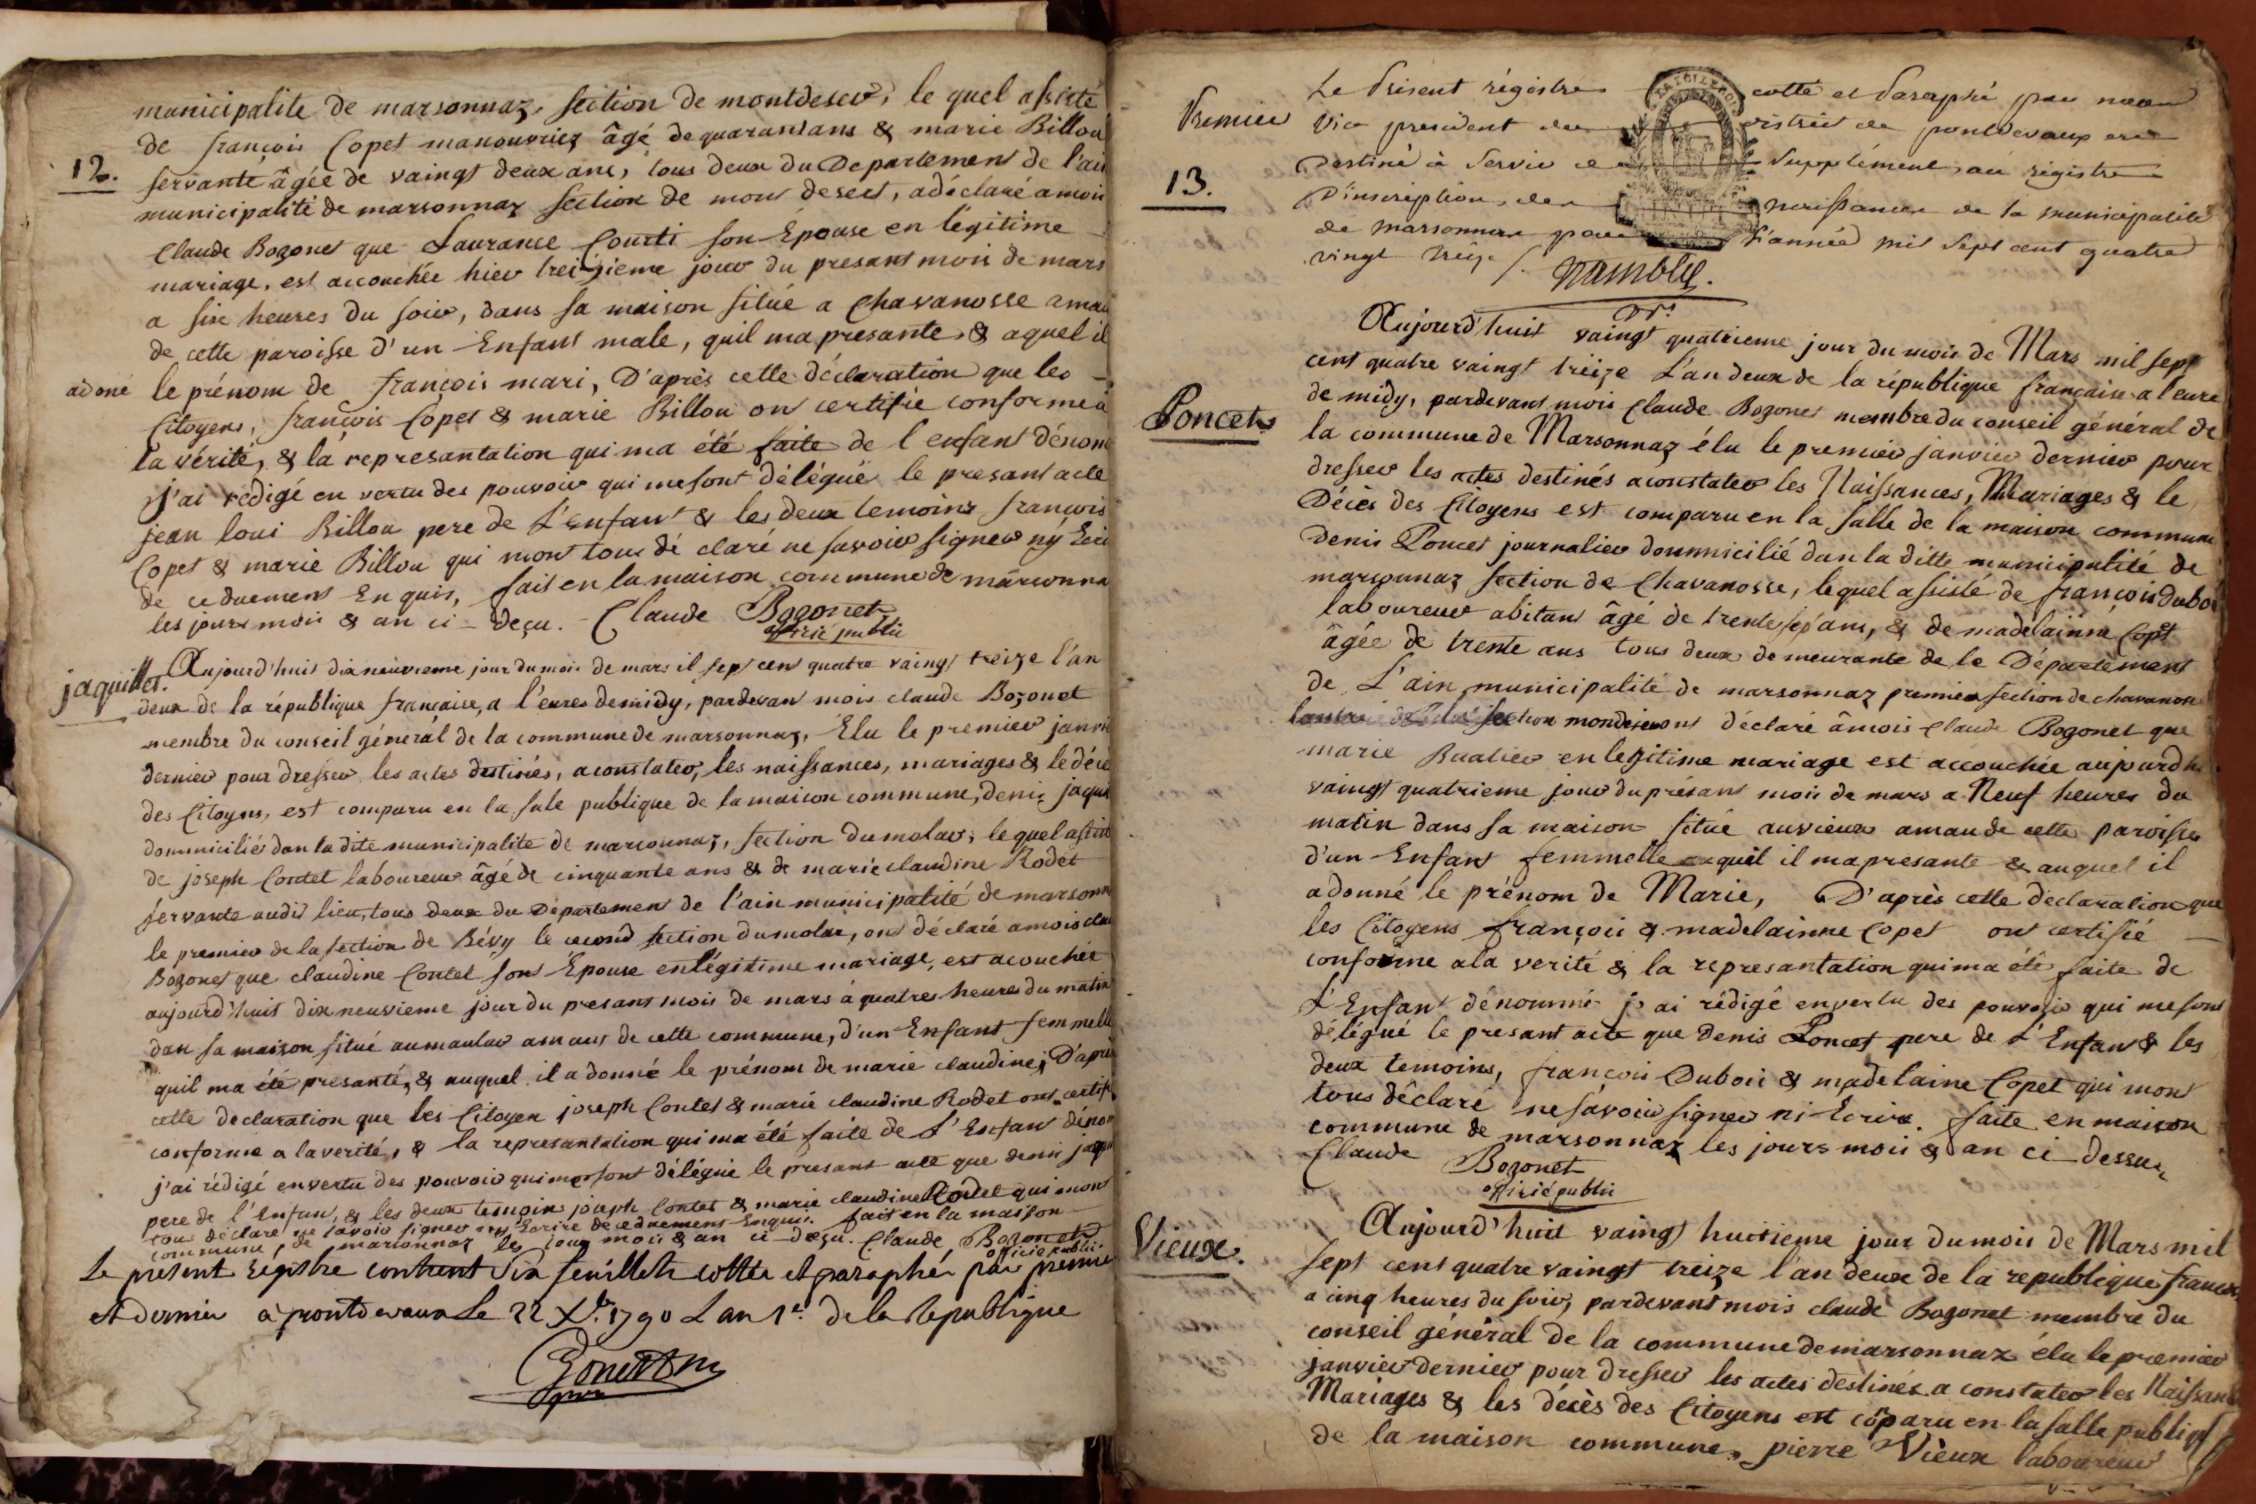 municipalite de marsonnaz, section de montdesev, le quel assisté
12.
de françois Copet manouvriez âgé de quarantans & marie Billou
servante âgée de vaingt deux ans, tous deux du Departement de l'ain
municipalité de marsonnaz section de mont desert, adéclaré amoii
Claude Bozonet que Laurance Courti son Epouse en légitime
mariage, est accouchée hier treizieme jour du presant mois de mars
a six heures du soir, dans sa maison situé a Chavanosse aman
de cette paroisse d'un Enfant male, quil ma presanté & aquel il
adoné le prénom de françois mari, D'après cette déclaration que les
Citoyens, françois Copet & marie Billou on certifié conforme a
la vérité, & la représantation qui ma été faite de l'enfant dénom
j'ai redigé en vertu des pouvoir qui mesont délégué le presant acte
jean loui Billou pere de L'Enfant & les deux temoins françois
Copet & marie Billou qui mont tous dé claré ne savoir signer ny Ecri
de ceduement Enquis, fait en la maison commune de marsonna
les jours mois & an ci-deçu. Claude Bozonet
officié public
jaquillet.
Aujourd'huit dix neuvieme jour du mois de mars il sept cent quatre vaingt treize l'an
deux de la république française, a l'eures de midy, pardevan mois claude Bozonet
membre du conseil général de la commune de marsonnaz, Elu le premier janvi
dernier pour dresser les actes destinés, aconstater, les naissances, mariages & le décé
des Citoyens, est comparu en la sale publique de la maison commune, denis jaqui
dommiciliés dan la dite municipalite de marsonnaz, section du molar, le quel assisté
de joseph Contet laboureur âgé de cinquante ans & de marie claudine Rodet
servante audit lieu, tous deux du Departement de l'ain municipalité de marsonna
le premier de la section de Bévy le second section du molar, ont déclaré amois clau
Bozonet que claudine Contet sont Epouse enlégitime mariage, est acouchée
aujourd'huit dix neuvieme jour du presant mois de mars à quatres heures du matin
dan sa maison situé aumaular amant de cette commune, d'un Enfant femmelle
quil ma été presanté, & auquel il a donné le prénom de marie claudine, D'après
cette declaration que les Citoyen joseph Contet & marie claudine Rodet ont certifi
conforme a la verité, & la represantation qui ma été faite de L'Enfant dénom
j'ai rédigé envertu des pouvoir qui me sont délégué le presant acte que denis jaqui
pere de l'Enfant, & les deux temoin joseph Contet & marie claudine Rodet qui mont
tous déclaré ne savoir signer ny Ecrire de ceduement Enquis. fait en la maison
commune, de marsonnaz les jour mois & an ci-deçu. Claude Bozonet
officié public
Le présent registre contenant six feuillets cottés et paraphés par premier
et dernier à pontdevaux Le 22 Xbre 1790 L'an 1er de la République
Premier
13.
Le Présent régistre cotté et Paraphé par nous
Vice president du District de pontdevaux est
Destiné à servir de Supplément au régistre
D'inscription des naissances de la municipalité
de marsonnas pour L'année mil sept cent quatre
vingt treize
Poncet
Aujourd'huit vaingt quatrieme jour du mois de Mars mil sept
cent quatre vaingt treize L'an deux de la république française a l'eure
de midy, pardevant mois Claude Bozonet membre du conseil général de
la commune de Marsonnaz élu le premier janvier dernier pour
dresser les actes destinés aconstater les Naissances, Mariages & le
Décès des Citoyens est comparu en la salle de la maison commune
Denis Poncet journalier dommicilié dan la ditte municipalité de
marsonnaz section de Chavanosse, lequel assisté de françois dubois
laboureur abitant âgé de trente sep ans, & de madelainne Copet
âgée de trente ans tous deux demeurante de le Département
de L'ain municipalité de marsonnaz premier section de chavanosse
section mondesert ont déclaré amois Claude Bozonet que
marie Rualier en legitime mariage est accouchée aujourd'hu
vaingt quatrieme jour du présant mois de mars a Neuf heures du
matin dans sa maison situé auvieux amau de cette paroisse
d'un Enfant femmelle auquel il ma presanté & auquel il
adonné le prénom de Marie, D'après cette declaration que
les Citoyens françois & madelainne Copet ont certifié
conforme ala verité & la represantation qui ma été faite de
L'Enfant dénommé j'ai rédigé envertu des pouvoir qui me sont
délégué le presant acte que Denis Poncet pere de L'Enfant & les
deux temoins, françois Duboii & madelaine Copet qui mont
tous déclaré ne savoir signer ni Ecrire. faite en maison
commune de marsonnaz les jours mois & an ci-dessu
Claude Bozonet
officié public
Vieux.
Aujourd'huit vaingt huitieme jour du mois de Mars mil
sept cent quatre vaingt treize l'an deux de la republique francais
a cinq heures du soir, pardevant mois claude Bozonet membre du
conseil général de la commune demarsonnaz élu le premier
janvier dernier pour dresser les actes destinés a constater les Naissan
Mariages & les décès des Citoyens est coparu en la salle publique
de la maison commune, pierre Vieux laboureur